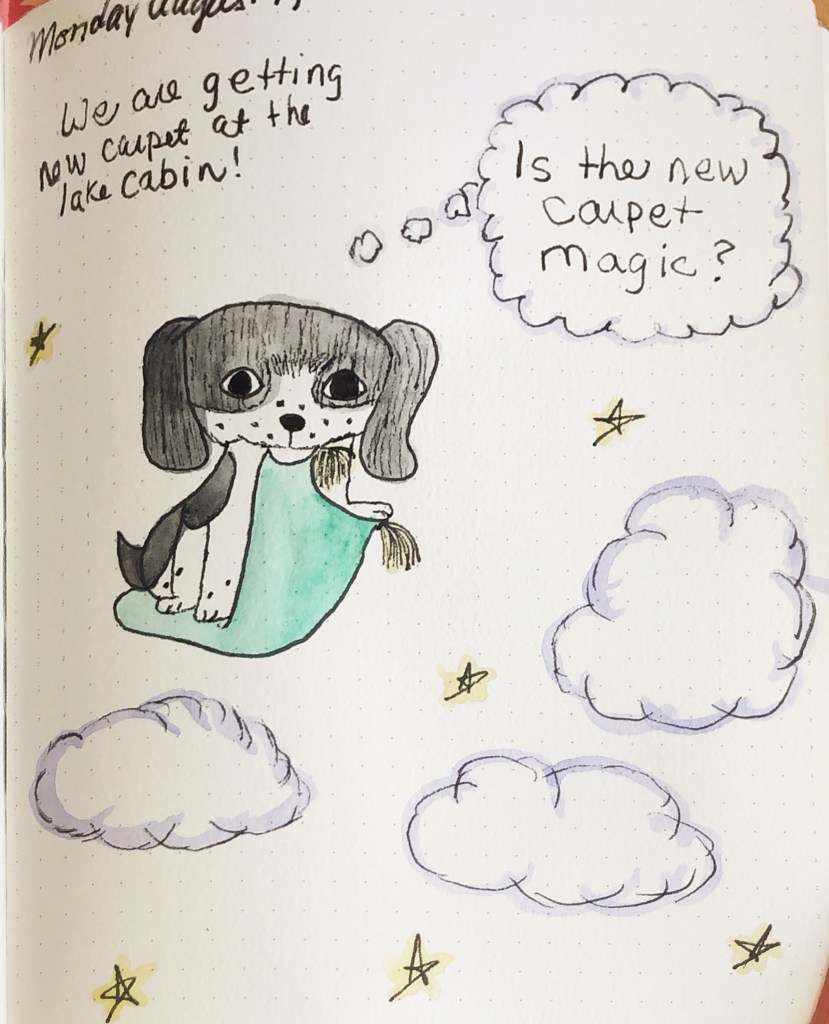 Monday August
We are getting
new carpet at the
lake cabin!
Is the new
carpet
magic?